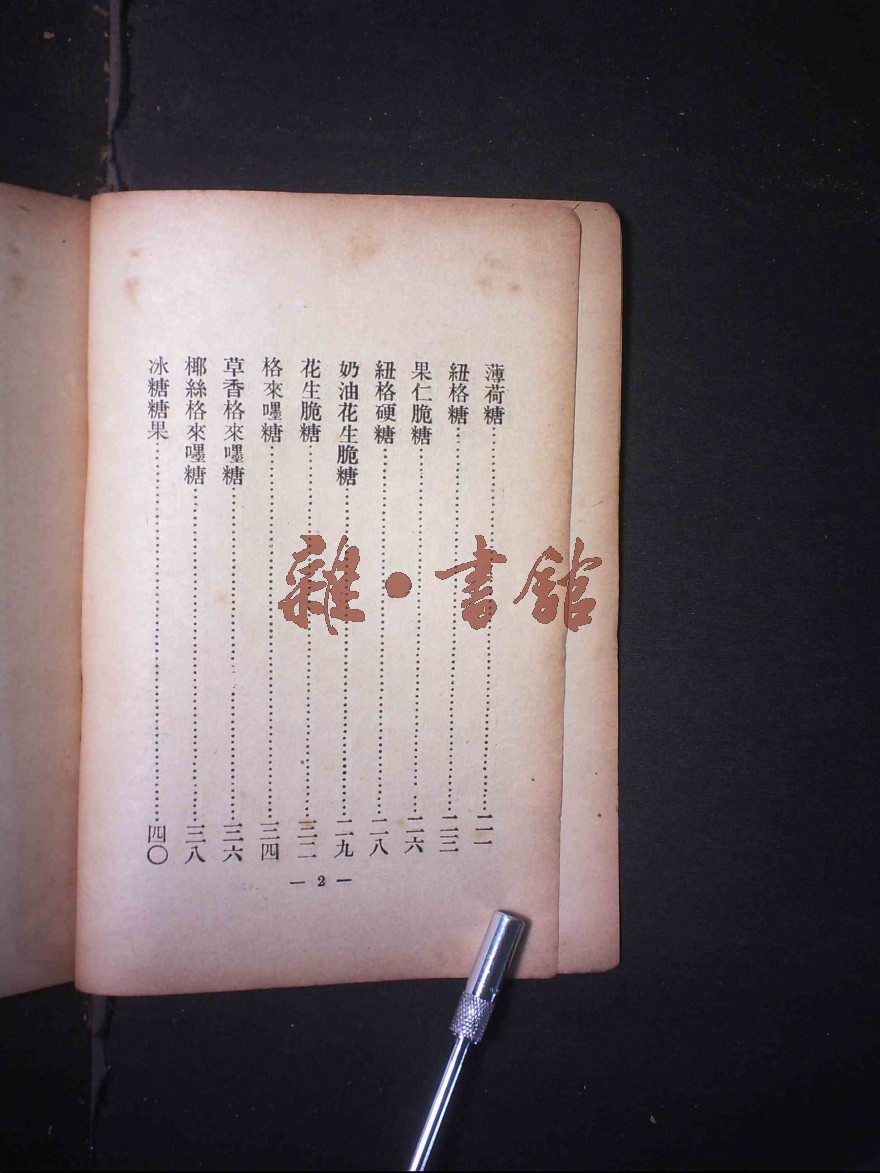 薄荷糖……二一
紐格糖……二三
果仁脆糖……二六
紐格硬糖……二八
奶油花生脆糖……二九
花生脆糖……三二
格來嘿糖……三四
草香格來嘿糖……三六
椰絲格來嘿糖……三八
冰糖糖果……四〇
— 2 —
雜·書館